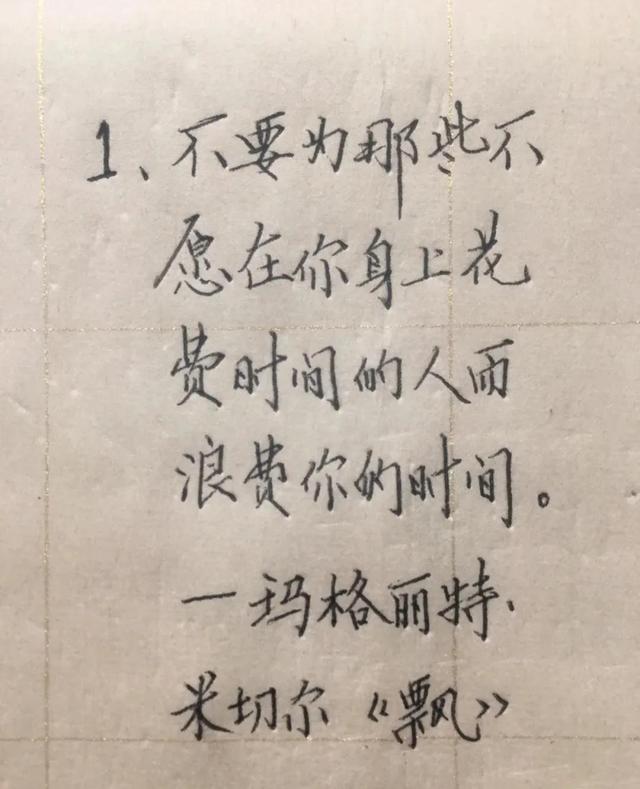 1、不要为那些不
愿在你身上花
费时间的人而
浪费你的时间。
一玛格丽特·
米切尔《飘》